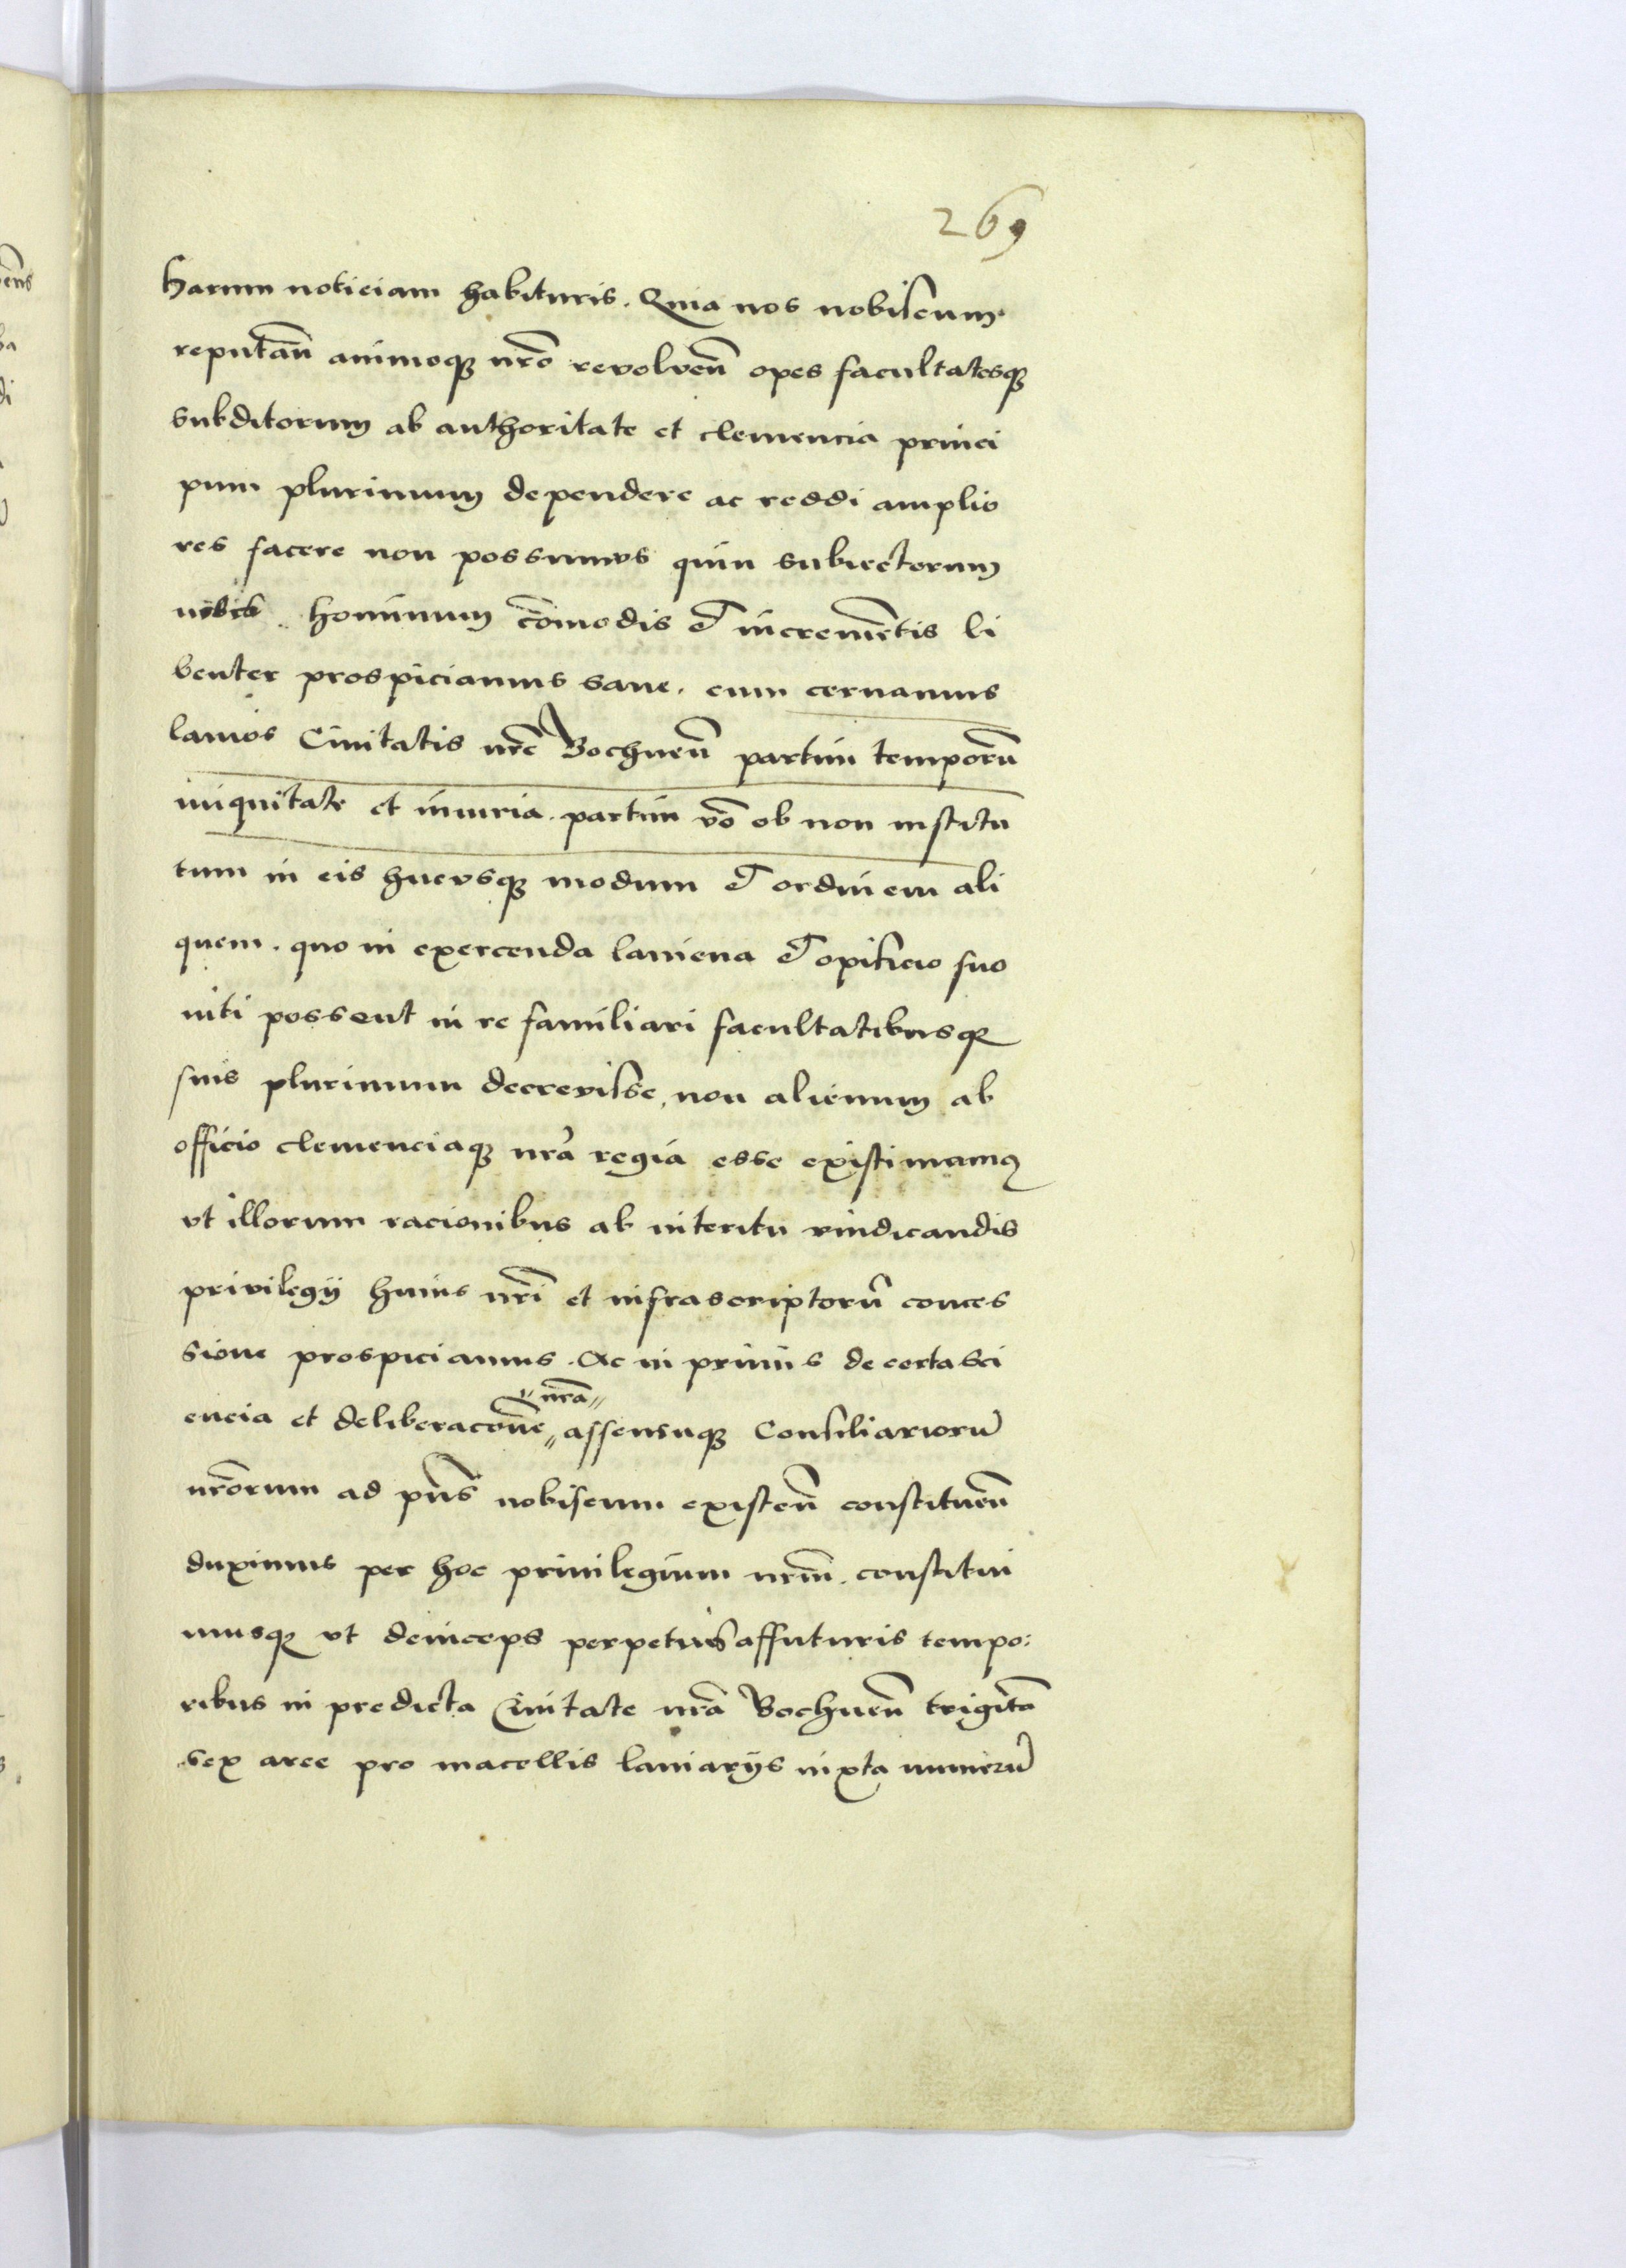 269
harum noticiam habituris. Quia nos nobiscum
reputan̄ animoq̢ nr̄o revolven̄ opes facultatesq̢
subditorum ab authoritate et clemencia princi
pum plurimum dependere ac reddi amplio
res facere non possumus quin subiectorum
nobis hominum com̄odis et incremētis li
benter prospiciamus sane. cum cernamus
lanios Civitatis nr̄e Bochnen̄ partim temporū
iniquitate et iniuria. partim vo̅ ob non institu
tum in eis hucusq̢ modum et ordinem ali
quem. quo in exercenda laniena et opificio suo
niti possent in re familiari facultatibusq̢
suis plurimum decrevisse, non alienum ab
officio clemenciaq̢ nr̄a regia esse existimamꝰ
ut illorum racionibus ab interitu vindicandis
privilegij huius nr̄i et infrascriptorū conces
sione prospiciamus. Ac in primis de certa sci
nr̄a
encia et deliberacōne assensuq̢ Consiliariorū
nr̄orum ad pn̄s nobiscum existen̄ constituen̄
duximus per hoc privilegium nr̄m. constitui
musq̢ ut deinceps perpetuis affuturis tempo:
ribus in predicta Civitate nr̄a Bochnen̄ trigīta
sex aree pro macellis laniarijs iuxta numerū